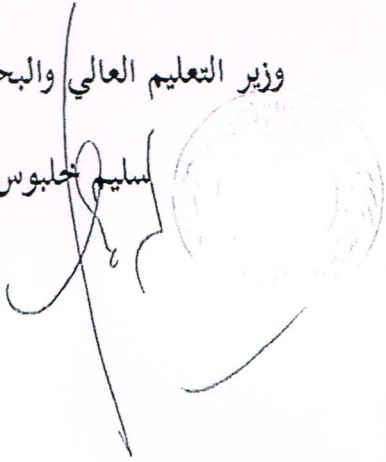 وزير التعليم العالي والبح
سليم خلبوس